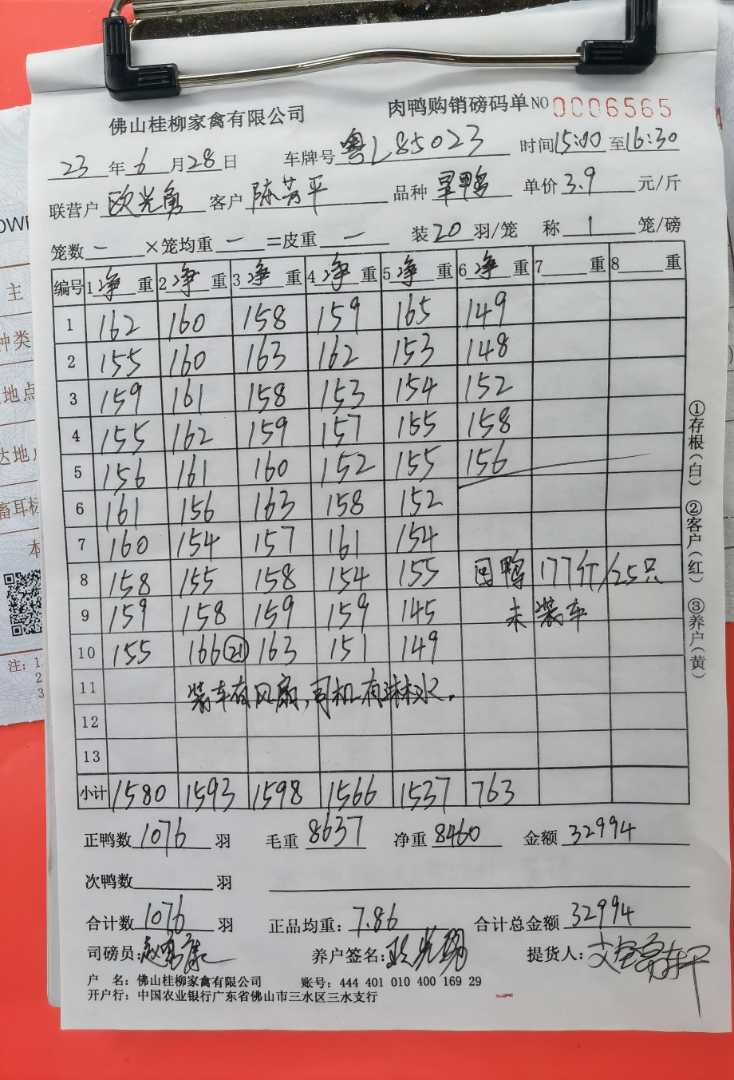 佛山桂柳家禽有限公司 肉鸭购销磅码单 NO 0006565
23 年 6 月 28 日 车牌号 粤L85023 时间 15:00 至 16:30
联营户 欧光勇 客户 陈芳平 品种 旱鸭 单价 3.9 元/斤
笼数 一 ×笼均重 一 =皮重 一 装 20 羽/笼 称 1 笼/磅
编号 1 净 重 2 净 重 3 净 重 4 净 重 5 净 重 6 净 重 7 重 8 重
1 162 160 158 159 165 149
2 155 160 163 162 153 148
3 159 161 158 153 154 152
4 155 162 159 157 155 158
5 156 161 160 152 155 156
6 161 156 163 158 152
7 160 154 157 161 154
8 158 155 158 154 155 回鸭 177斤/25只
9 159 158 159 159 145 未装车
10 155 166 (21) 163 151 149
11 装车有风扇,司机有淋水.
12
13
小计 1580 1593 1598 1566 1537 763
正鸭数 1076 羽 毛重 8637 净重 8460 金额 32994
次鸭数 羽
合计数 1076 羽 正品均重: 7.86 合计总金额 32994
司磅员: 养户签名: 提货人:
户 名: 佛山桂柳家禽有限公司 账号: 444 401 010 400 169 29
开户行: 中国农业银行广东省佛山市三水区三水支行
①存根(白) ②客户(红) ③养户(黄)
主
种类
地点
达地
畜耳标
本
注: 1
2
3